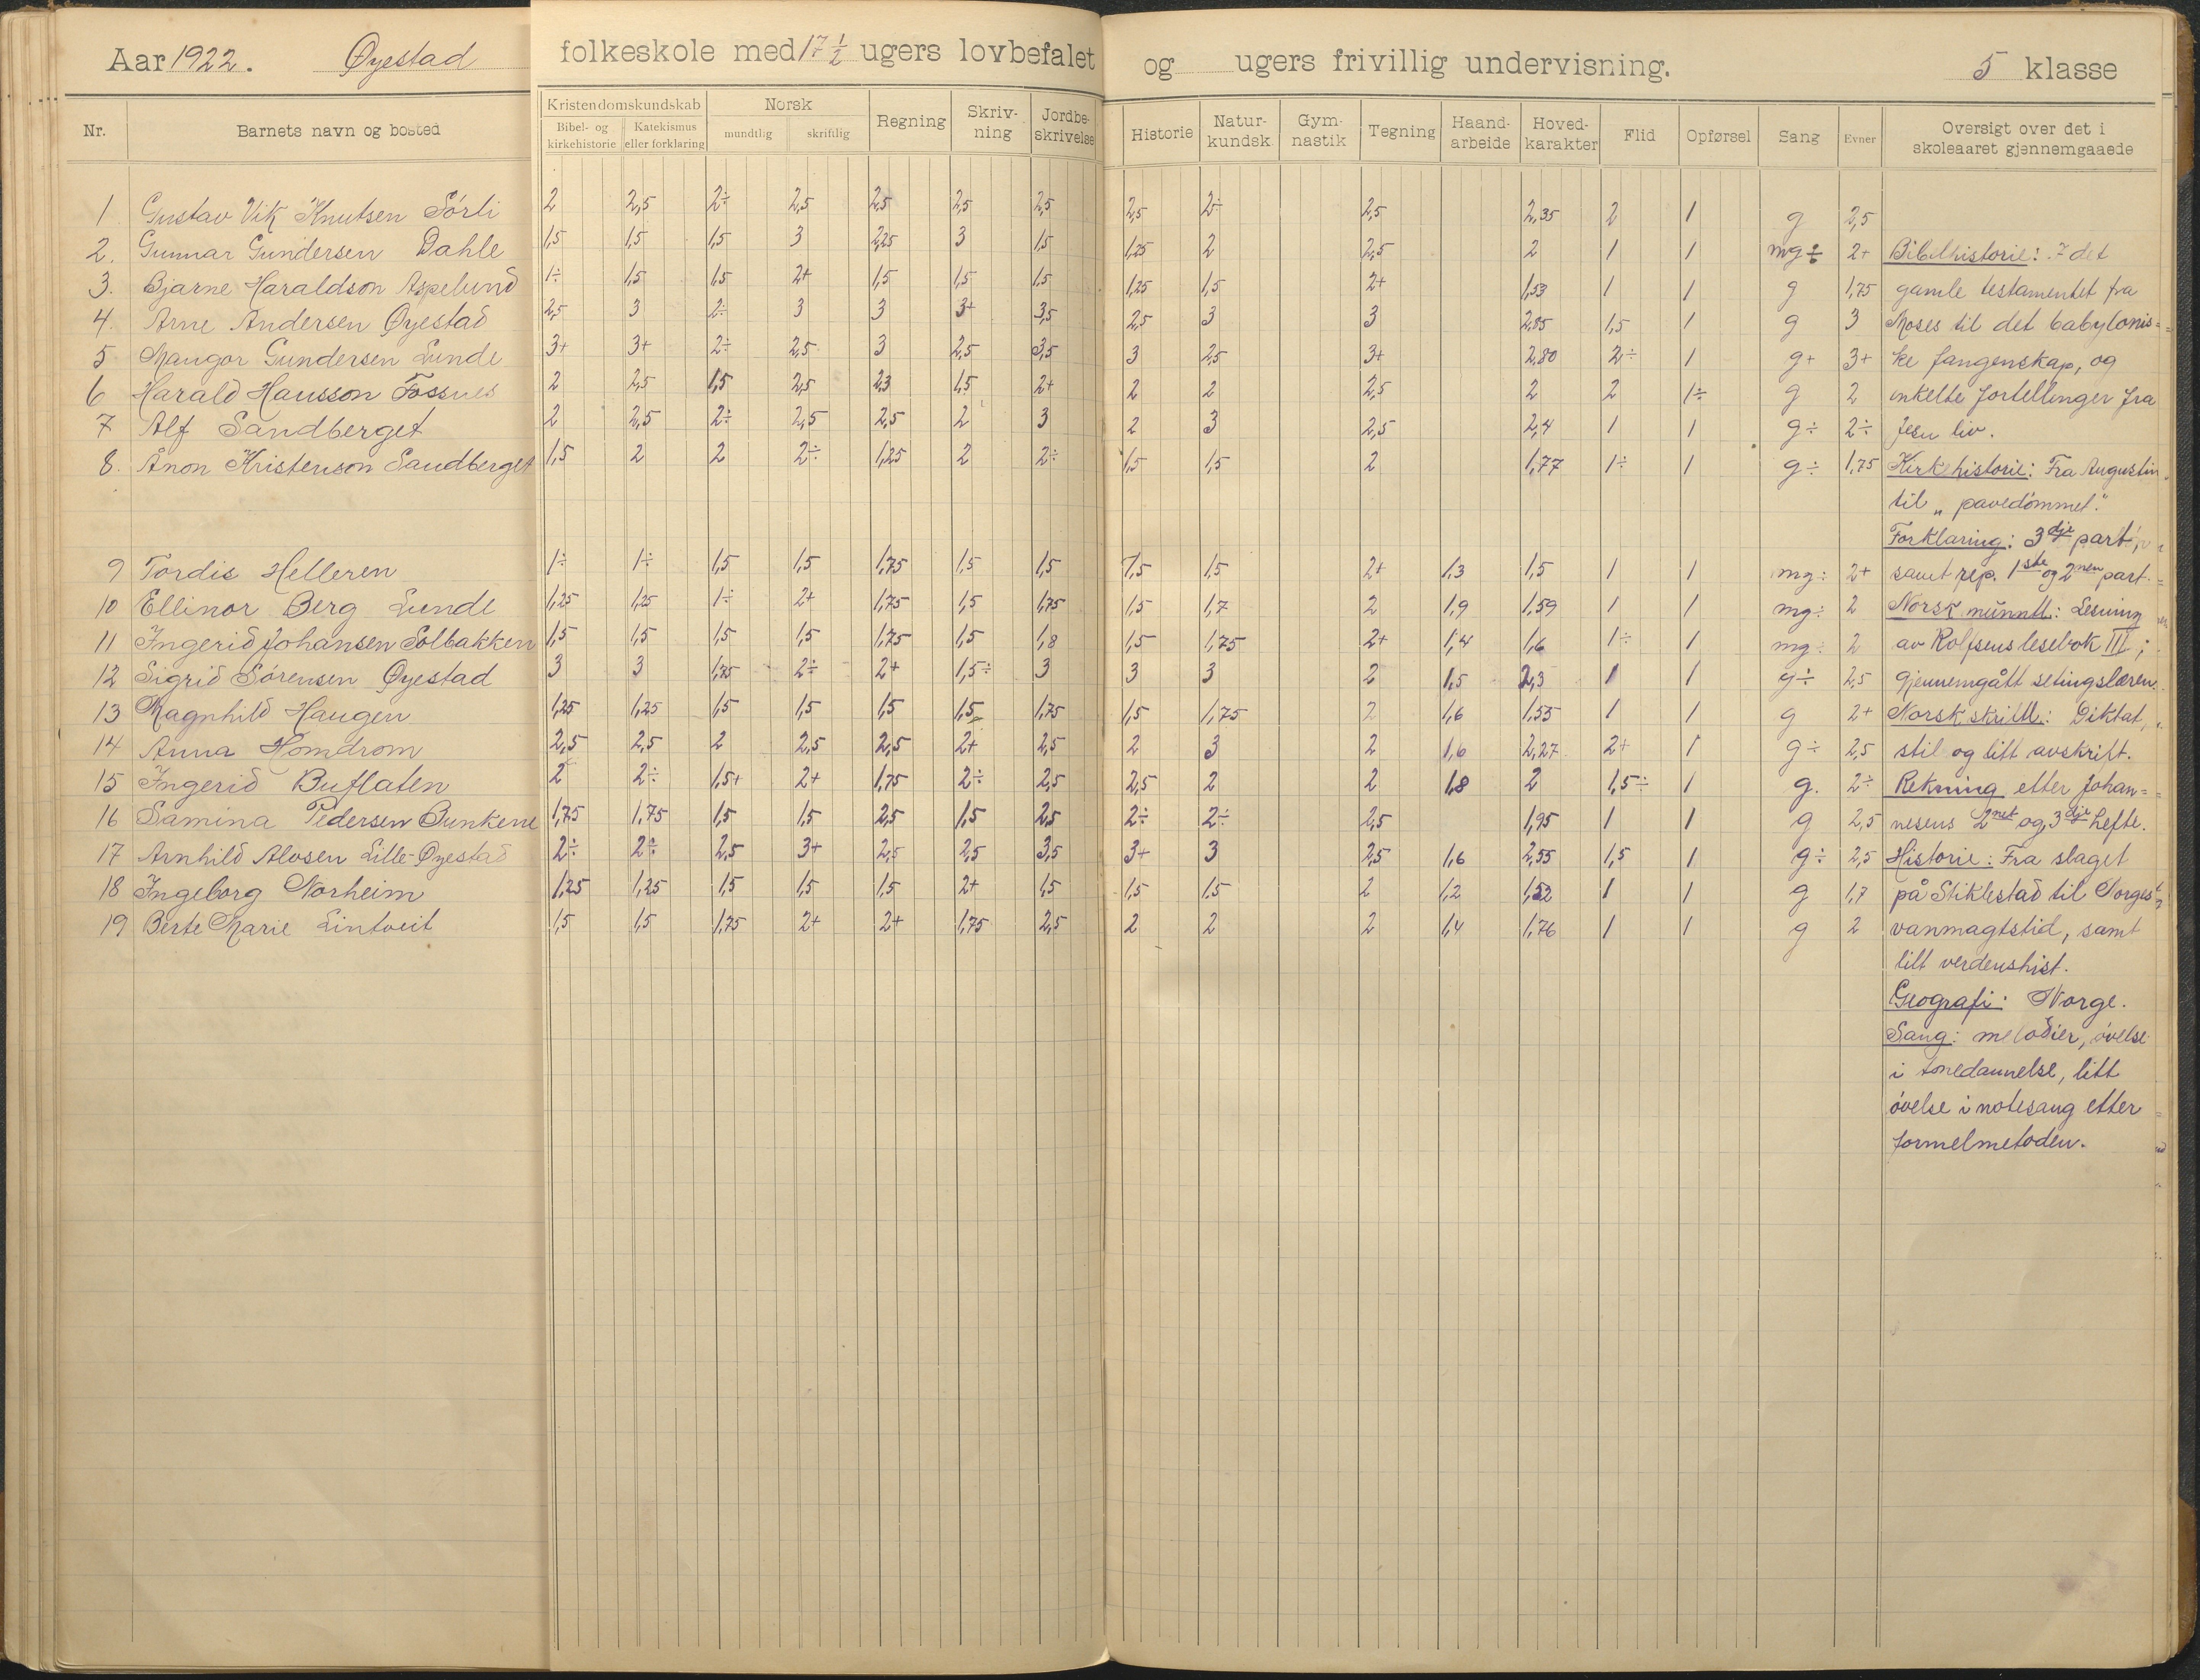 Aar 1922. Øyestad folkeskole med 17 1/2 ugers lovbefalet og ugers frivillig undervisning. 5 klasse
Nr. Barnets navn og bosted Kristendomskundskab Bibel- og kirkehistorie Katekismus eller forklaring Norsk mundtlig skriftlig Regning Skrivning Jordbeskrivelse Historie Naturkundsk. Gymnastik Tegning Haandarbeide Hovedkarakter Flid Opførsel Sang Evner Oversigt over det i skoleaaret gjennemgaaede
1 Gustav Vik Knutsen Sórli 2 2,5 2÷ 2,5 2,5 2,5 2,5 2,5 2÷ 2,5 2,35 2 1 g 2,5
2. Gunnar Gundersen Dahle 1,5 1,5 1,5 3 2,25 3 1,5 1,25 2 2,5 2 1 1 mg÷ 2+ Bibelhistorie: I det
3. Bjarne Haraldson Aspelund 1÷ 1,5 1,5 2+ 1,5 1,5 1,5 1,25 1,5 2+ 1,53 1 1 g 1,75 gamle testamentet fra
4. Arne Andersen Øyestad 2,5 3 2÷ 3 3 3+ 3,5 2,5 3 3 2,85 1,5 1 g 3 Moses til det babylonis=
5 Mangor Gundersen Lunde 3+ 3+ 2÷ 2,5 3 2,5 3,5 3 2,5 3+ 2,80 2÷ 1 g+ 3+ ke fangenskap, og
6 Harald Hansson Fossnes 2 2,5 1,5 2,5 2,3 1,5 2+ 2 2 2,5 2 2 1÷ g 2 enkelte fortellinger fra
7 Alf Sandberget 2 2,5 2÷ 2,5 2,5 2 3 2 3 2,5 2,4 1 1 g÷ 2÷ Jesu liv.
8. Ånon Kristenson Sandberget 1,5 2 2 2÷ 1,25 2 2÷ 1,5 1,5 2 1,77 1÷ 1 g÷ 1,75 Kirkhistorie: Fra Augustin
til „pavedómmet."
Forklaring: 3dje part,
9 Tordis Helleren 1÷ 1÷ 1,5 1,5 1,75 1,5 1,5 1,5 1,5 2+ 1,3 1,5 1 1 mg÷ 2+ samt rep. 1ste og 2nen part.
10 Ellinor Berg Lunde 1,25 1,25 1÷ 2+ 1,75 1,5 1,75 1,5 1,7 2 1,9 1,59 1 1 mg÷ 2 Norsk munntl.: Lesning
11 Ingerid Johansen Solbakken 1,5 1,5 1,5 1,5 1,75 1,5 1,8 1,5 1,75 2+ 1,4 1,6 1÷ 1 mg÷ 2 av Rolfsens lesebok III;
12 Sigrid Sórensen Øyestad 3 3 1,75 2÷ 2+ 1,5÷ 3 3 3 2 1,5 2,3 1 1 g÷ 2,5 gjennemgått setingslæren.
13 Ragnhild Haugen 1,25 1,25 1,5 1,5 1,5 1,5 1,75 1,5 1,75 2 1,6 1,55 1 1 g 2+ Norsk skriftl.: Diktat,
14 Anna Homdrom 2,5 2,5 2 2,5 2,5 2+ 2,5 2 3 2 1,6 2,27 2+ 1 g÷ 2,5 stil og litt avskrift.
15 Ingerid Buflaten 2 2÷ 1,5+ 2+ 1,75 2÷ 2,5 2,5 2 2 1,8 2 1,5÷ 1 g. 2÷ Rekning etter Johan=
16 Samina Pedersen Bunkene 1,75 1,75 1,5 1,5 2,5 1,5 2,5 2÷ 2÷ 2,5 1,95 1 1 g 2,5 nesens 2net og 3dje hefte.
17 Arnhild Alvsen Lille-Øyestad 2÷ 2÷ 2,5 3+ 2,5 2,5 3,5 3+ 3 2,5 1,6 2,55 1,5 1 g÷ 2,5 Historie: Fra slaget
18 Ingeborg Norheim 1,25 1,25 1,5 1,5 1,5 2+ 1,5 1,5 1,5 2 1,2 1,52 1 1 g 1,7 på Stiklestad til Norges
19 Berte Marie Lintveit 1,5 1,5 1,75 2+ 2+ 1,75 2,5 2 2 2 1,4 1,76 1 1 g 2 vanmagtstid, samt
litt verdenshist.
Geografi: Norge.
Sang: melodier, óvelse
i tonedannelse, litt
óvelse i notesang etter
formelmetoden.